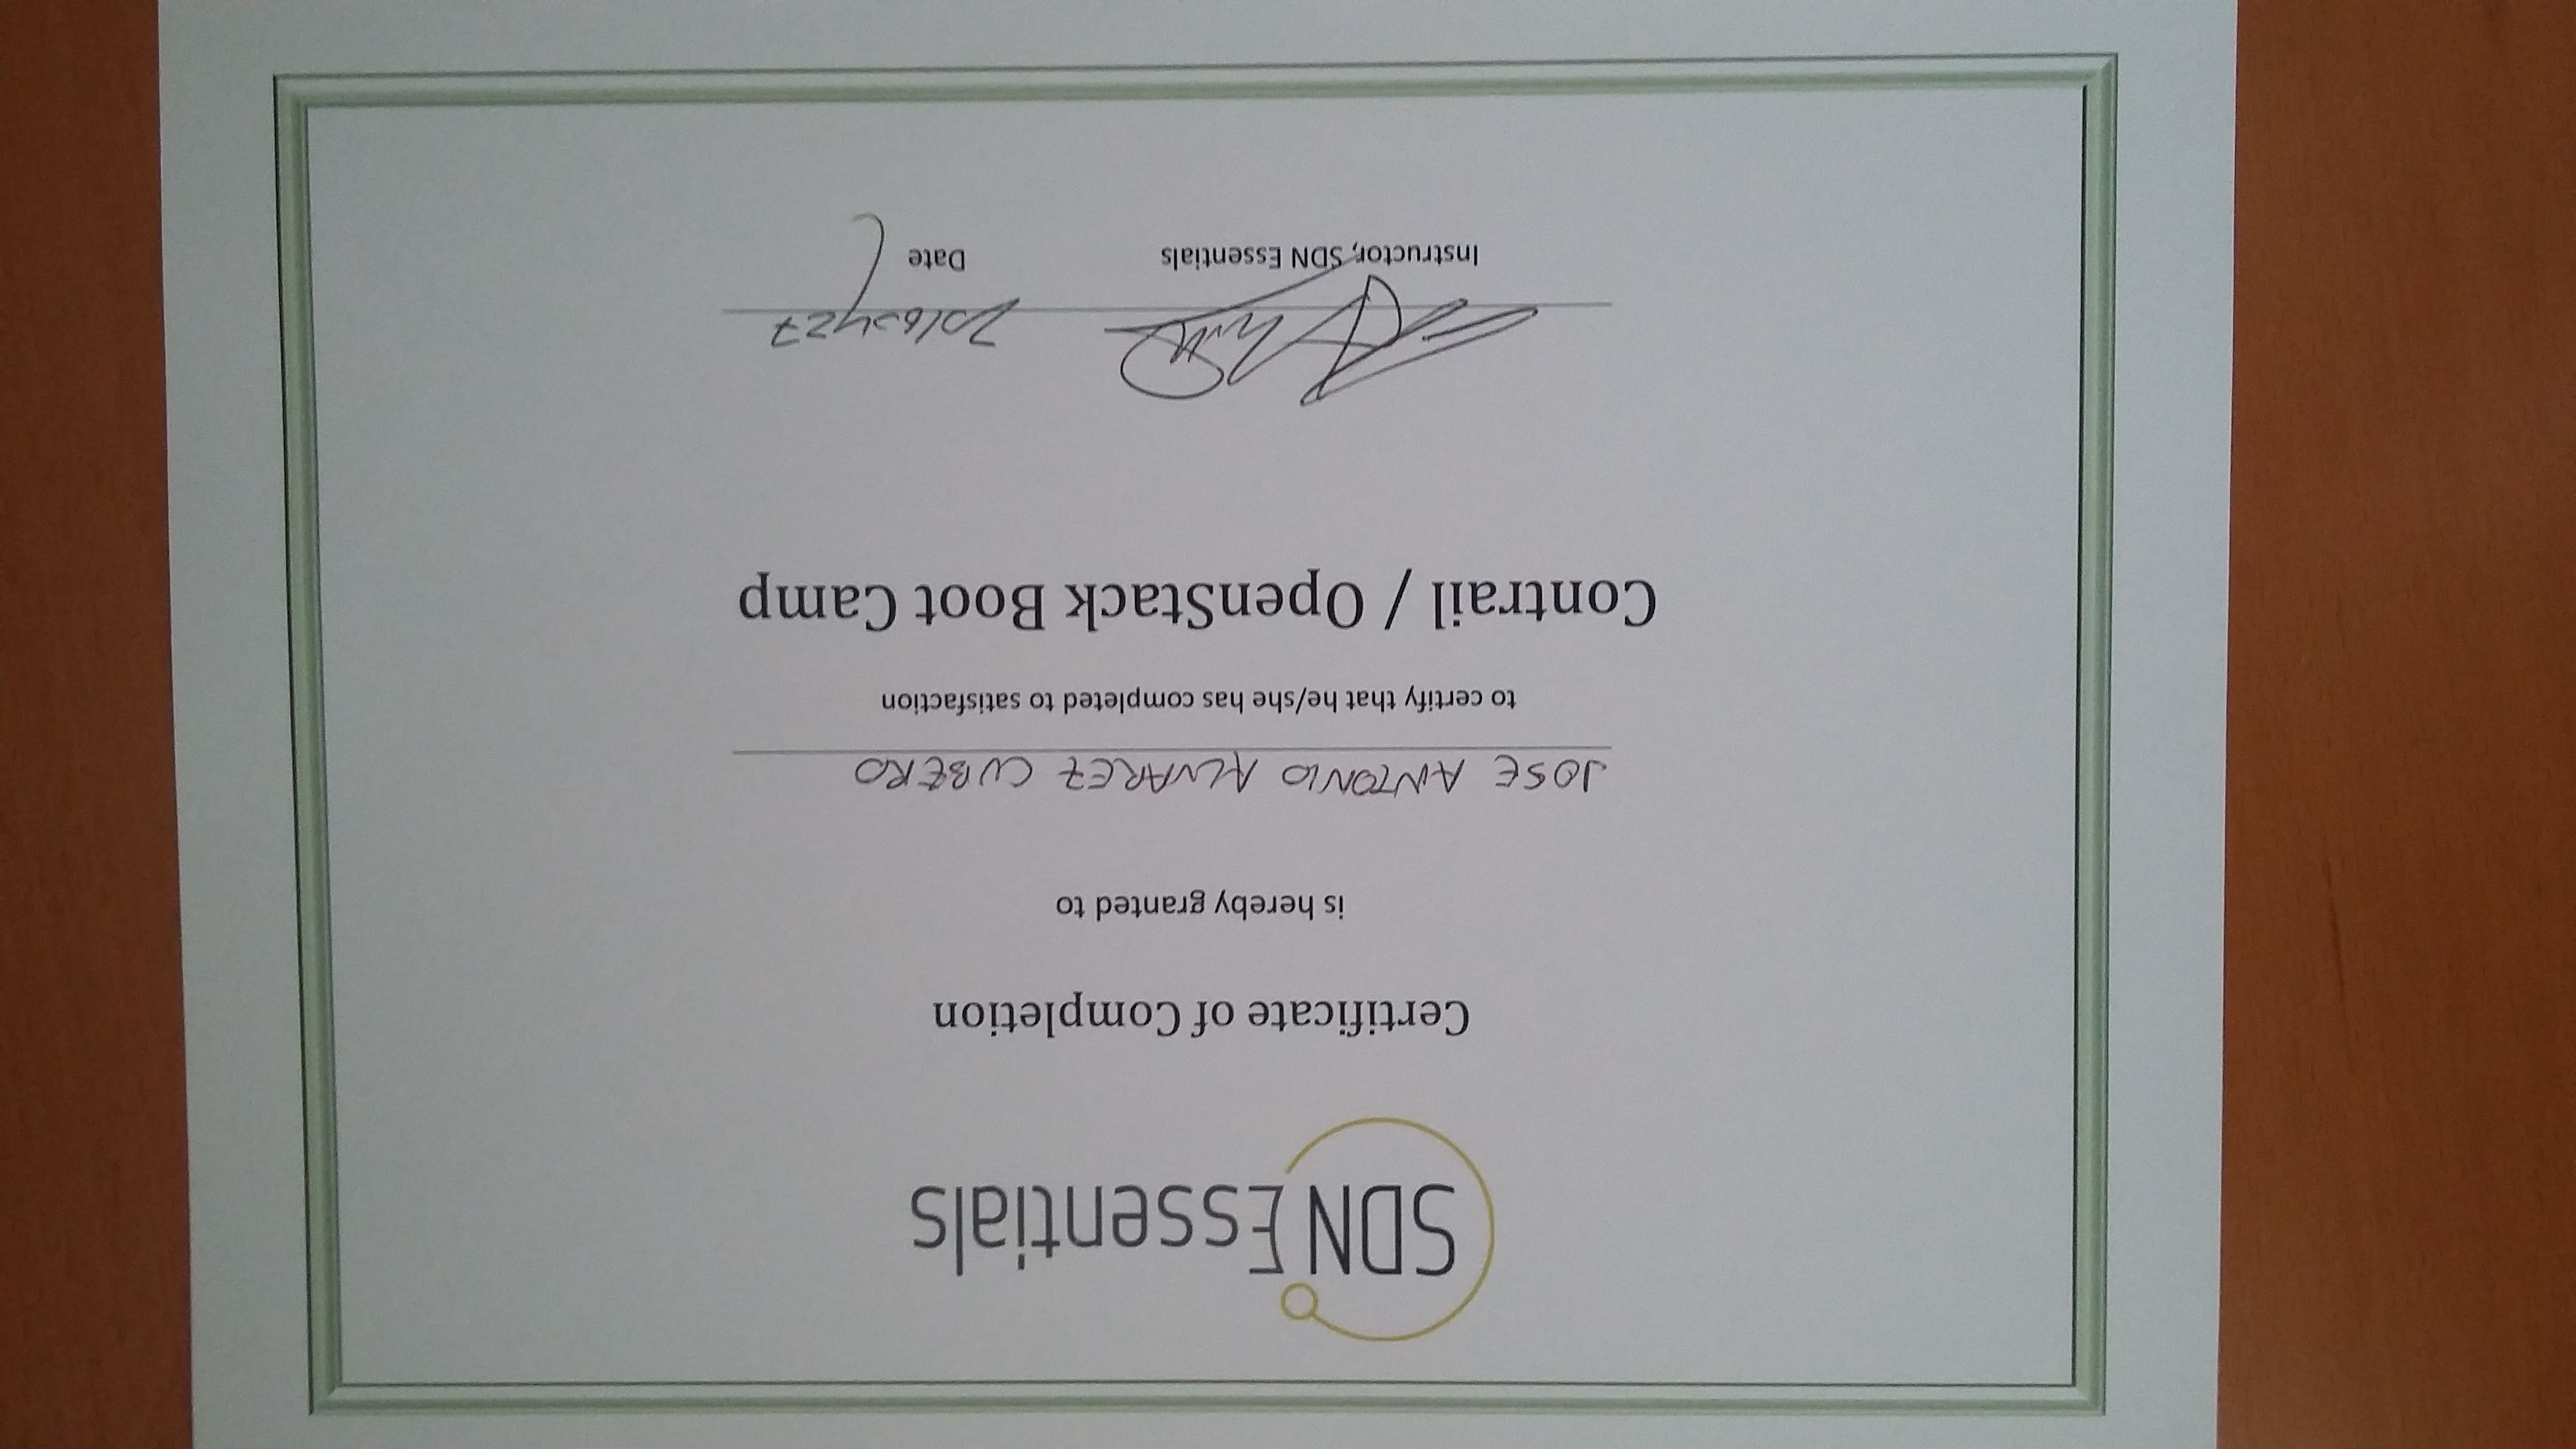 SDN Essentials
Certificate of Completion
is hereby granted to
JOSE ANTONIO ALVAREZ CUBERO
to certify that he/she has completed to satisfaction
Contrail / OpenStack Boot Camp
20160427
Instructor, SDN Essentials Date